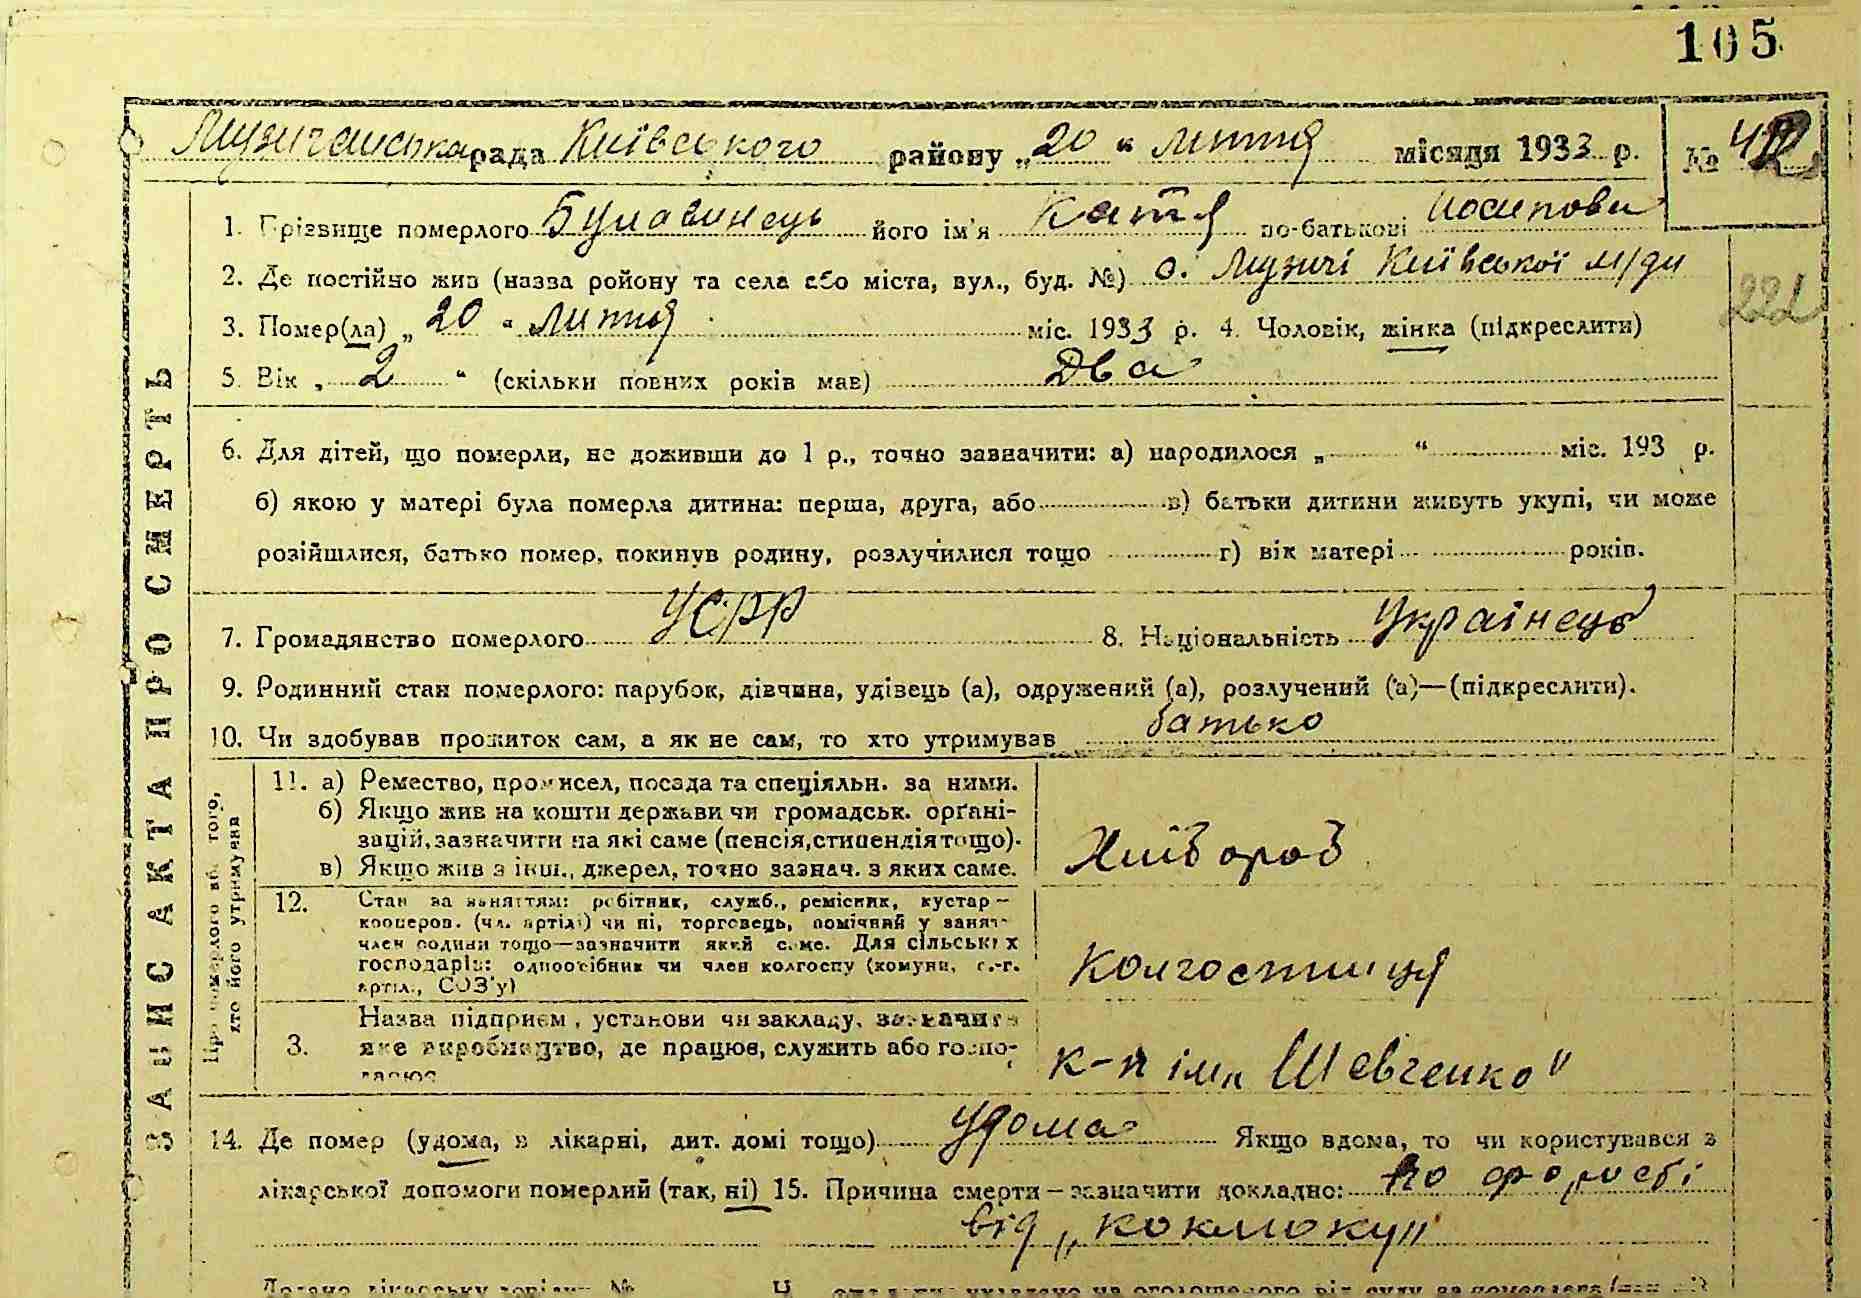 105
Музичанська рада Київського району „20“ липня місяця 1933 р. №
1. Прізвище померлого Булавинець його ім'я Катя по-батькові Йосипови
2. Де постійно жив (назва ройону та села або міста, вул., буд. №) с. Музичі Київської м/ди
3. Помер(ла) „20“ липня міс. 1933 р. 4. Чоловік, жінка (підкреслити)
5. Вік „2“ (скільки повних років мав) Два
6. Для дітей, що померли, не доживши до 1 р., точно зазначити: а) народилося „ “ міс. 193 р.
б) якою у матері була померла дитина: перша, друга, або в) батьки дитини живуть укупі, чи може
розійшлися, батько помер, покинув родину, розлучилися тощо г) вік матері років.
7. Громадянство померлого УСРР 8. Національність Українець
9. Родинний стан померлого: парубок, дівчина, удівець (а), одружений (а), розлучений (а)—(підкреслити).
10. Чи здобував прожиток сам, а як не сам, то хто утримував батько
11. а) Ремество, промисел, посада та спеціяльн. за ними.
б) Якщо жив на кошти держави чи громадськ. органі-
зацій, зазначити на які саме (пенсія, стипендія тощо).
в) Якщо жив з інш., джерел, точно зазнач. з яких саме.
Хлібороб
12. Стан за заняттям: робітник, служб., ремісник, кустар —
кооперов. (чл. артілі) чи ні, торговець, помічний у занят-
член родини тощо—зазначити який саме. Для сільських
господарів: одноосібник чи член колгоспу (комуни, с.-г.
артіл., СОЗ'у)
Колгоспниця
3. Назва підприєм., установи чи закладу, зазначити
яке виробництво, де працює, служить або госпо-
дарює
к-п ім. Шевченко"
14. Де помер (удома, в лікарні, дит. домі тощо) удома Якщо вдома, то чи користувався з
лікарської допомоги померлий (так, ні) 15. Причина смерти — зазначити докладно: по
від „коклюку"
ЗАПИС АКТА ПРО СМЕРТЬ
Про померлого або того,
хто його утримував
221